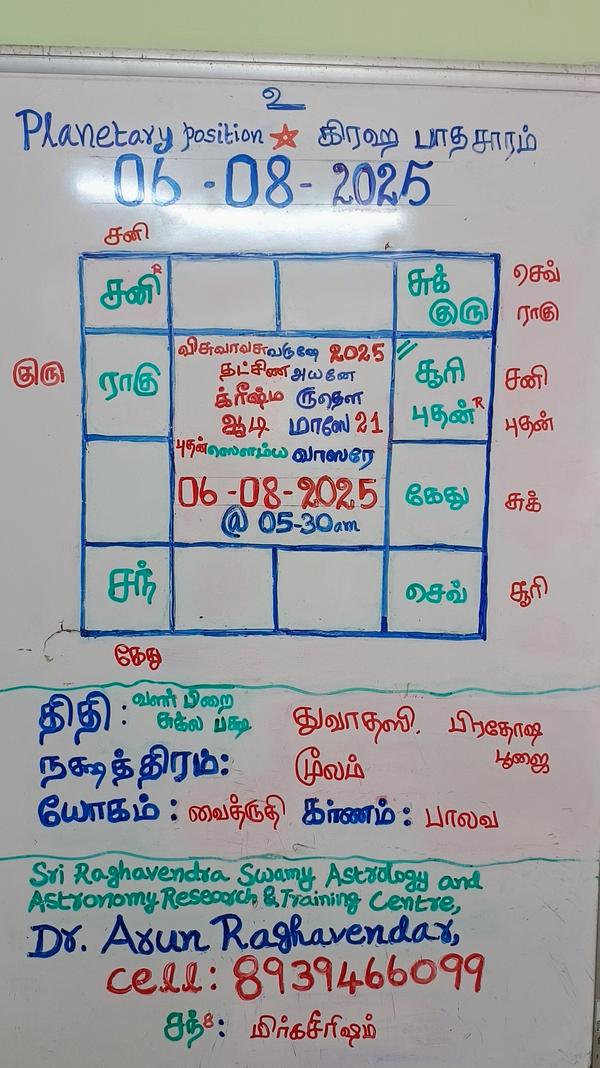 உ
Planetary position கிரஹ பாதசாரம்
06-08-2025
சனி
சனி R
சுக்
குரு
செவ்
ராகு
குரு
ராகு
விசுவாவசு வருஷே 2025
தட்சிண அயனே
க்ரீஷ்ம ருதௌ
ஆடி மாஸே 21
புதன் ஸௌம்ய வாஸரே
06-08-2025
@ 05-30am
சூரி
புதன் R
சனி
புதன்
கேது
சுக்
சந்
செவ்
சூரி
கேது
திதி: வளர் பிறை
சுக்ல பக்ஷ
துவாதஸி. பிரதோஷ
பூஜை
நக்ஷத்திரம்: மூலம்
யோகம்: வைத்ருதி கரணம்: பாலவ
Sri Raghavendra Swamy Astrology and
Astronomy Research & Training Centre,
Dr. Arun Raghavendar,
cell: 8939466099
சந் 8: மிர்கசீரிஷம்